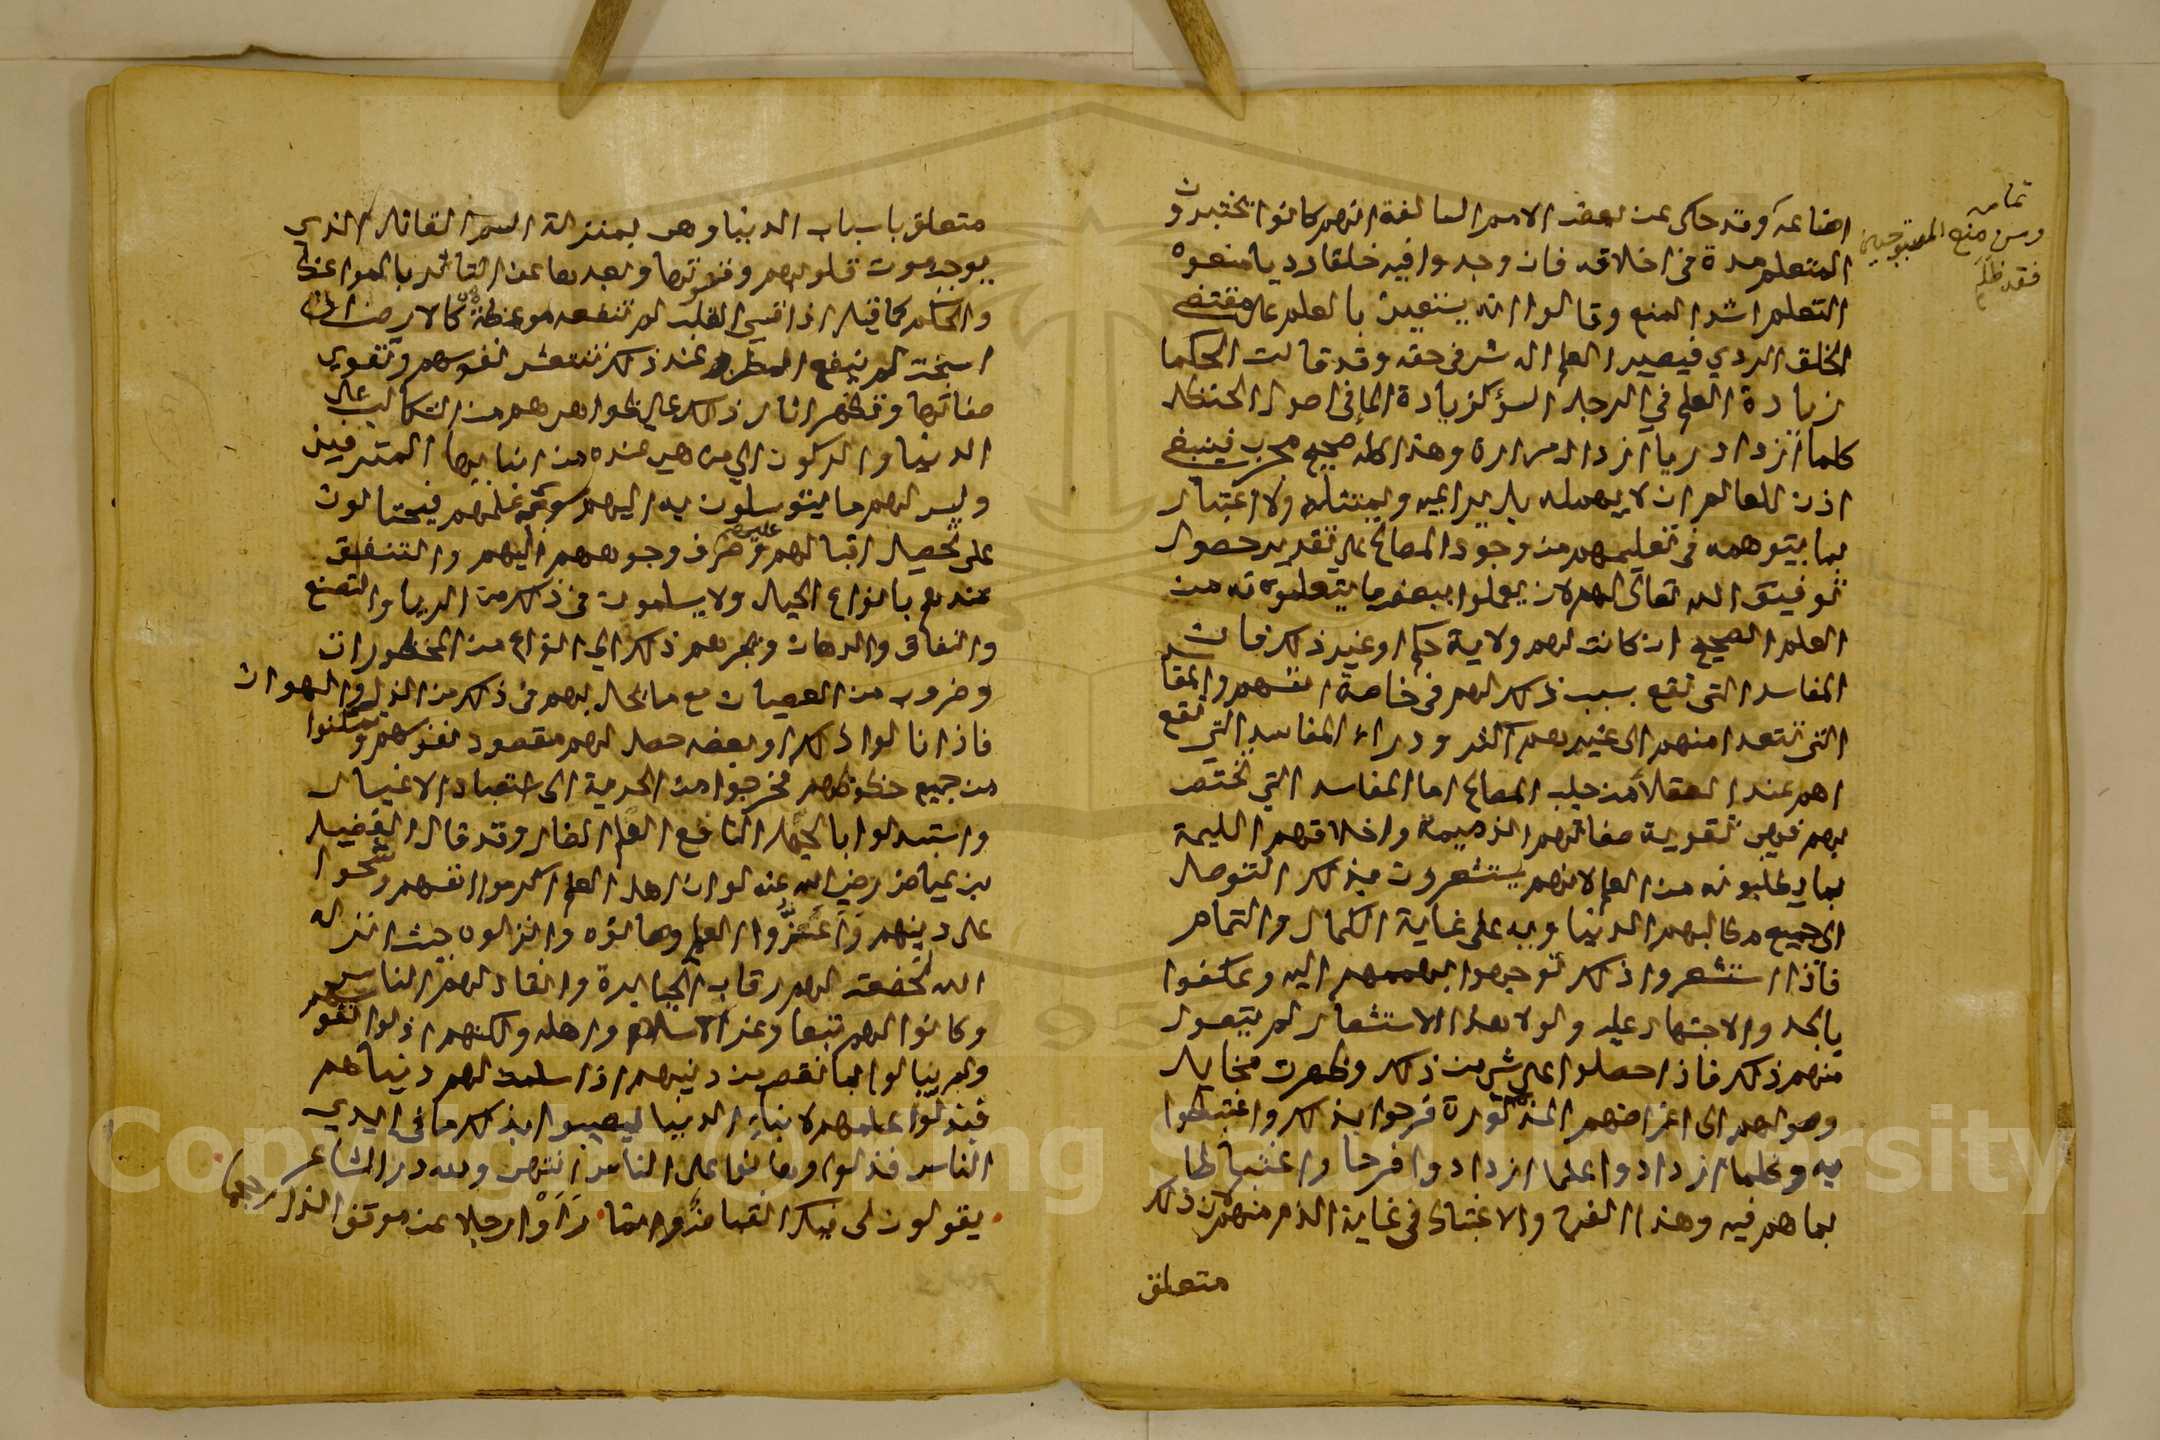 اضاعه وقد حكى عن بعض الامم السالفة انهم كانوا يختبرون
المتعلم مدة في اخلاقه فان وجدوا فيه خلقا رديا منعوه
التعلم اشد المنع وقالوا انه يستعين بالعلم على مقتضى
الخلق الردي فيصير العلم الة شر في حقه وقد قالت الحكما
زيادة العلم في الرجل السؤ كزيادة الما في اصول الحنظل
كلما ازداد ريا ازداد مرارة وهذا كله صحيح مجرب فينبغي
اذن للعالم ان لا يهمله بل يراعيه ويمتثله ولا اعتبار
بما يتوهمه في تعليمهم من وجود المصالح على تقدير حصول
توفيق الله تعالى لهم لان يعملوا ببعض ما يتعلمونه من
العلم الصحيح ان كانت لهم ولاية حكم او غير ذلك فان
المفاسد التي تقع بسبب ذلك لهم في خاصة انفسهم والمفاسد
التي تتعدا منهم الى غيرهم اكثر ودراء المفاسد التي تقع
اهم عند العقلا من جلب المصالح اما المفاسد التي تختص
بهم فهي تقوية صفاتهم الذميمة واخلاقهم اللئيمة
بما يطلبونه من العلم لانهم يستشعرون بذلك التوصل
الى جميع مطالبهم الدنياوية على غاية الكمال والتمام
فاذا استشعروا ذلك توجهوا بهممهم اليه وعكفوا
بالجد والاجتهاد عليه ولولا هذا الاستشعار لم يتصور
منهم ذلك فاذا حصلوا على شي من ذلك وظهرت مخايل
وصولهم الى اغراضهم المذكورة فرحوا بذلك واغتبطوا
به وكلما ازدادوا علما ازدادوا فرحا واغتباطا
بما هم فيه وهذا الفرح والاغتباط في غاية الذم منهم لان ذلك
متعلق
تمامه
ومن منع المستوجبين
فقد ظلم
متعلق باسباب الدنيا وهي بمنزلة السم القاتل الذي
يوجب موت قلوبهم وقسوتها وبعدها عن التاثر بالمواعظ
والحكم كما قيل اذا قسي القلب لم تنفعه موعظة كالارض ان
اسبخت لم ينفع المطر وعند ذلك تنتعش نفوسهم وتقوي
صفاتها وتظهر اثار ذلك على ظواهرهم من التكالب على
الدنيا والركون الى من هي عنده من ابنايها المترفين
وليس لهم ما يتوسلون به اليهم سوى علمهم فيحتالون
على تحصيل اقبالهم عليهم وصرف وجوههم اليهم والتنفق
عندهم بانواع الحيل ولا يسلمون في ذلك من الريا والتصنع
والنفاق والدهان ويجرهم ذلك الى انواع من المحظورات
وضروب من العصيان مع ما يحل بهم في ذلك من الذل والهوان
فاذا نالوا ذلك او بعضه حصل لهم مقصود نفوسهم وتمكنوا
من جميع حظوظهم فخرجوا من الحرية الى استعباد الاغيار
واستبدلوا بالجهل النافع العلم الضار وقد قال الفضيل
بن عياض رضي الله عنه لو ان اهل العلم اكرموا انفسهم وشحوا
على دينهم واعزوا العلم وصانوه وانزلوه حيث انزله
الله لخضعت لهم رقاب الجبابرة وانقاد لهم الناس
وكانوا لهم تبعا وعز الاسلام واهله ولكنهم اذلوا انفسهم
ولم يبالوا بما نقص من دينهم اذا سلمت لهم دنياهم
فبذلوا علمهم لابناء الدنيا ليصيبوا بذلك ما في ايدي
الناس فذلوا وهانوا على الناس انتهى ولله در الشاعر
يقولون لي فيك انقباض وانما رأوا رجلا عن موقف الذل احجما